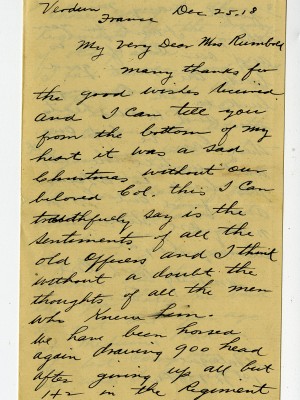 Verdun
France Dec 25.18
My Very Dear Miss Rumbold
Many thanks for
the good wishes received
and I Can tell you
from the bottom of my
heart it was a sad
Christmas without our
beloved Col. this I Can
truthfully say is the
sentiments of all the
old Officers and I think
without a doubt the
thoughts of all the men
who Knew him.
We have been horsed
again drawing 900 head
after giving up all but
142 in the Regiment